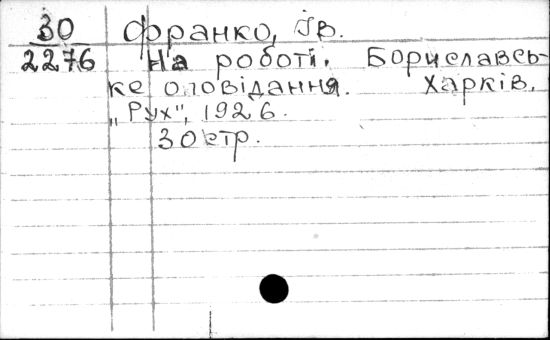 30 Франко, Ів.
2276 На роботі. Бориславсь-
ке оповідання. Харків.
„Рух", 1926.
30 стр.